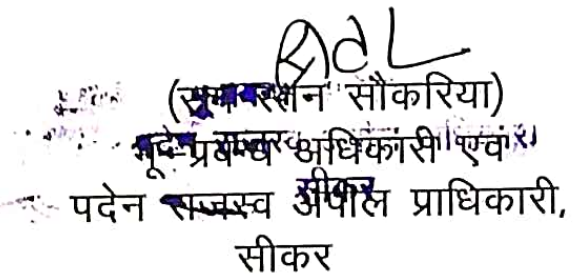 सौकरिया)
भू-प्रबन्ध अधिकारी एवं
पदेन राजस्व अपील प्राधिकारी,
सीकर